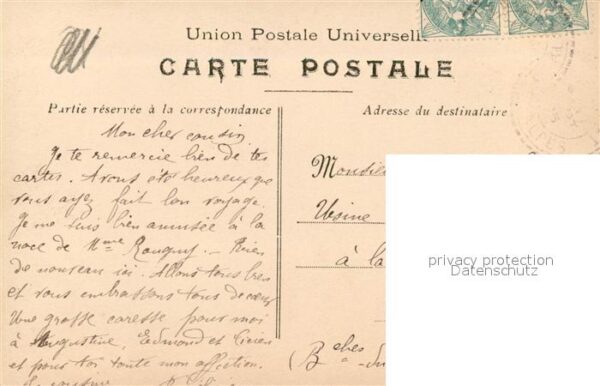 Union Postale Universell
CARTE POSTALE
Partie réservée à la correspondance
Adresse du destinataire
Mon cher cousin
Je te remercie bien de tes
cartes. Avons été heureux que
vous ayez fait bon voyage.
Je me suis bien amusée à la
noce de Mme Rougny. — Rien
de nouveau ici. Allons tous bien
et vous embrassons tous de cœur
Une grosse caresse pour moi
à Augustine, Edmond et
et pour toi toute mon affection.
Monsieu
Usine
à la
(Bches du
privacy protection
Datenschutz